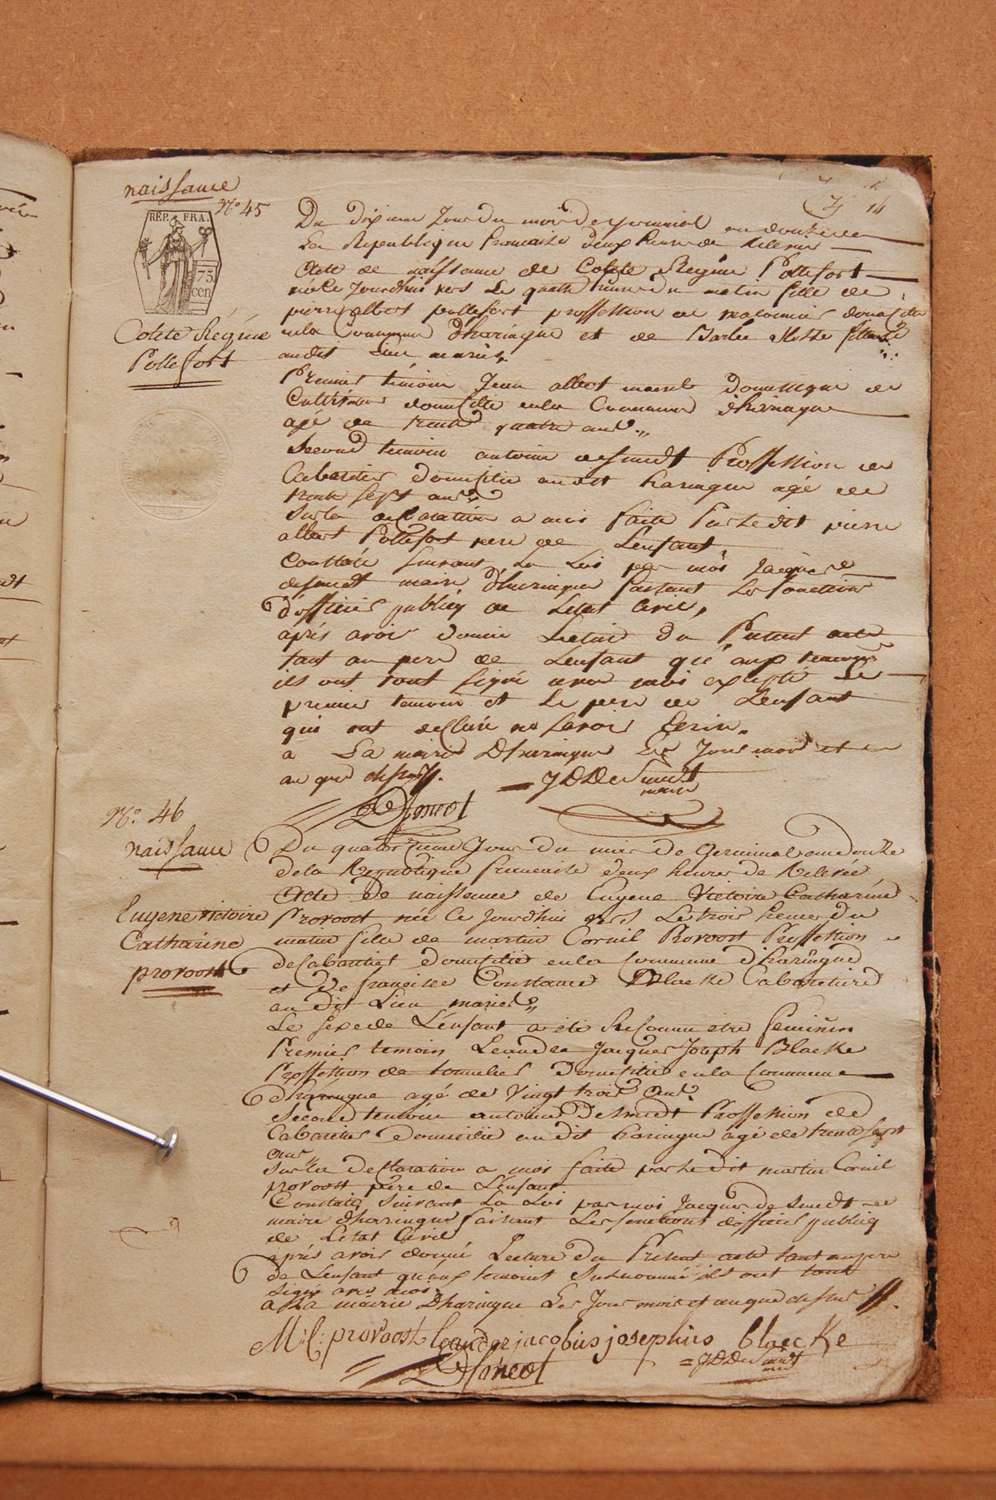 naissance
No 45
14
RÉP. FRA.
75
cen
Colete Regine
Pollefort
Du dixieme Jour du mois de germinal an douze de
La Republique francaise deux heure de relevee
Acte de naissance de Colete Regine Pollefort
née ce Jourdhuis vers Le quatre heures du matin fille de
pierre albert pollefort proffession de domicilié
en la Commune dharingue et de Barbe
au dit Lieu mariés
Premier temoin Jean albert domestique de
domicilié en la Commune dharingue
agé de trente quatre ans
Second temoin antoine desmedt Proffession de
Cabaretier domicilié au dit haringue agé de
trente sept ans
Sur la declaration a moi faite Par Le dit pierre
albert Pollefort pere de Lenfant
Constaté suivant La Loi par moi Jacques
desmedt maire dharingue faisant Les fonctions
d'officier publicq de Letat Civil,
après avoir donné Lecture du Present acte
tant au pere de Lenfant qu'aux temoins
ils ont tout signé avec moi excepté Le
premier temoin et Le pere de Lenfant
qui ont declaré ne savoir Ecrire.
a La mairie Dharingue Les Jour mois et
an que dessus.
= JDDeSmedt
maire
No. 46
naissance
Eugene victoire
Catharine
provoost
Du quatorzieme Jour du mois de Germinal an douze
de la Republique francaise deux heures de Relevée
Acte De naissance de Eugene Victoire Catharine
Provoost née Ce Jourdhui vers Le trois heures du
matin fille de martin Cornil Provoost Proffession
de Cabaretier domicilié en la Commune dharingue
et De francoise Constance Blaeke Cabaretiere
au dit Lieu mariés
Le sexe de L'enfant a été Reconnu être feminin
Premier temoin Leandre Jacques Joseph Blaeke
Proffession de domicilié en la Commune
dharingue agé de Vingt trois ans
Second temoin antoine Desmedt Proffession de
Cabaretier Domicilié au dit haringue agé de trente sept
ans
Sur La declaration a moi faite par Le dit martin Cornil
provoost père de L'enfant
Constaté Suivant La Loi par moi Jacques de Smedt
maire dharingue faisant Les fonctions dofficier publicq
de Letat Civil
après avoir donné Lecture du Present acte tant au pere
de Lenfant quaux temoins Susnommé ils ont tout
signé avec moi
a La mairie Dharingue Les Jour mois et an que dessus
M: C: provoost leander jacobus josephus blaecke
= JDDeSmedt